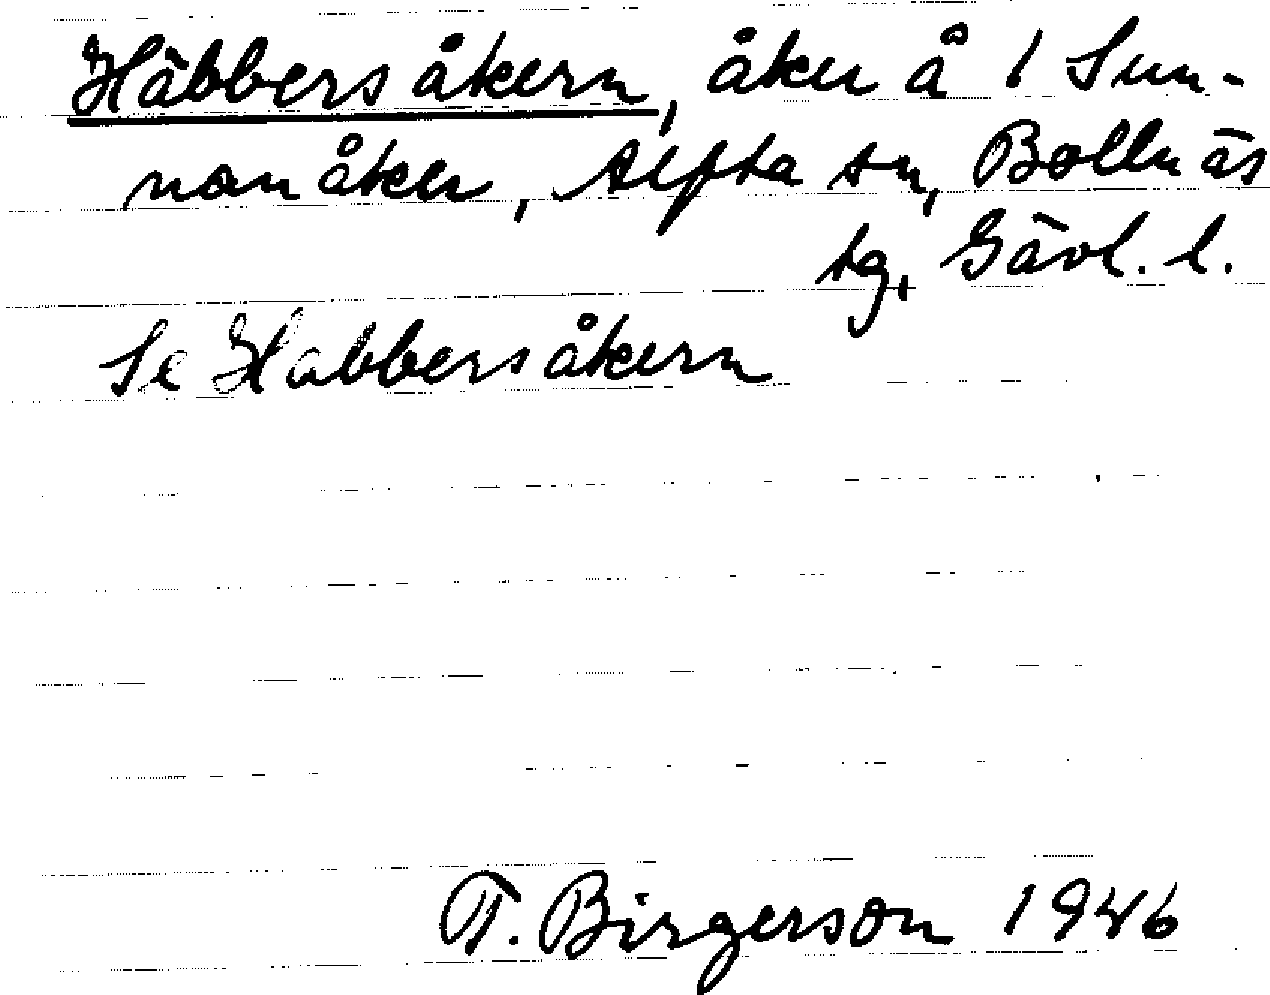 Häbbersåkern, åker å 1 Sun-
nanåker, Alfta sn, Bollnäs
tg, Gävl. l.
Se Habbersåkern
T. Birgerson 1946